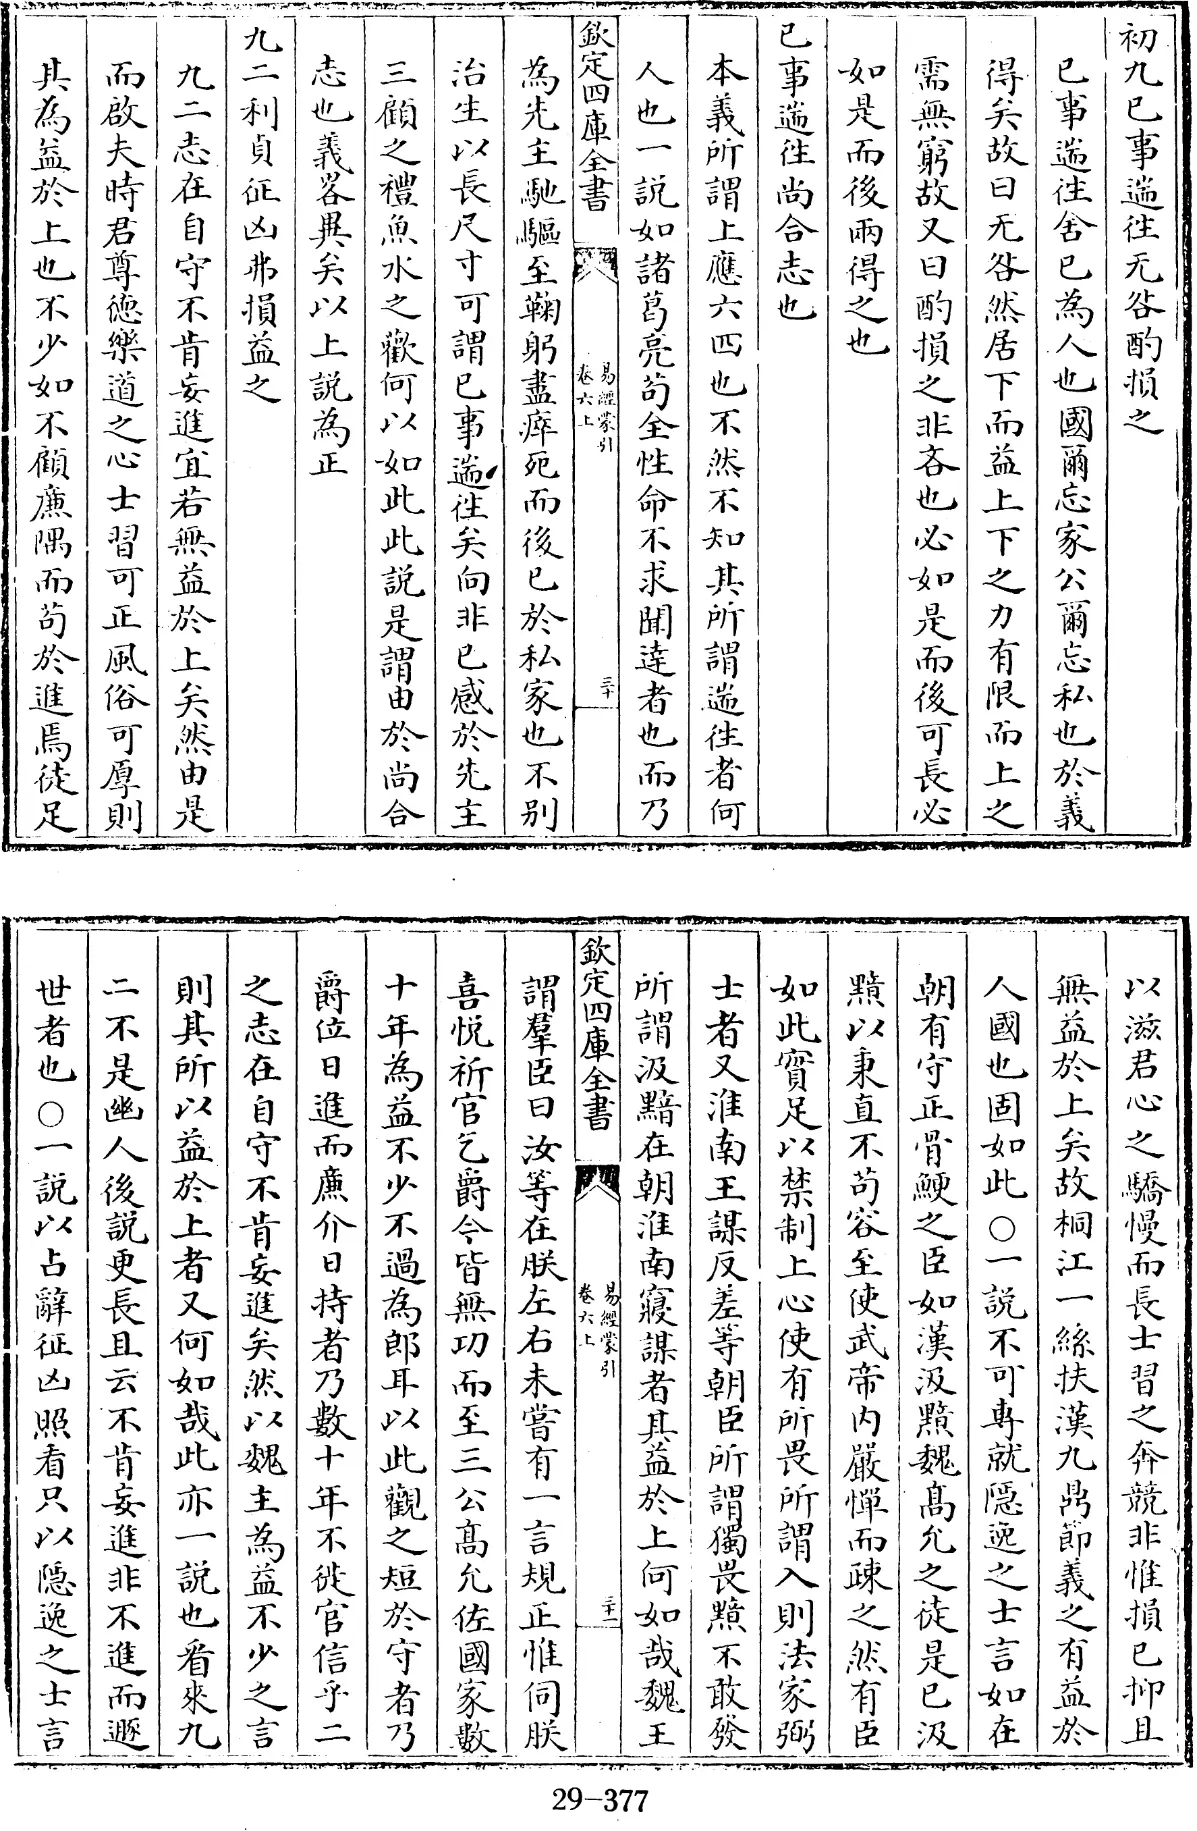 初九已事遄往无咎酌損之
已事遄往舍已為人也國爾忘家公爾忘私也於義
得矣故曰无咎然居下而益上下之力有限而上之
需無窮故又曰酌損之非吝也必如是而後可長必
如是而後兩得之也
已事遄往尚合志也
本義所謂上應六四也不然不知其所謂遄往者何
人也一說如諸葛亮苟全性命不求聞達者也而乃
欽定四庫全書
易經蒙引
卷六上
三十
為先主馳驅至鞠躬盡瘁死而後已於私家也不别
治生以長尺寸可謂已事遄往矣向非已感於先主
三顧之禮魚水之歡何以如此此說是謂由於尚合
志也義畧異矣以上說為正
九二利貞征凶弗損益之
九二志在自守不肯妄進宜若無益於上矣然由是
而啟夫時君尊德樂道之心士習可正風俗可厚則
其為益於上也不少如不顧廉隅而苟於進焉徒足
以滋君心之驕慢而長士習之奔競非惟損已抑且
無益於上矣故桐江一絲扶漢九鼎節義之有益於
人國也固如此○一說不可專就隱逸之士言如在
朝有守正骨鯁之臣如漢汲黯魏髙允之徒是已汲
黯以秉直不苟容至使武帝内嚴憚而疎之然有臣
如此實足以禁制上心使有所畏所謂入則法家弼
士者又淮南王謀反差等朝臣所謂獨畏黯不敢發
所謂汲黯在朝淮南寢謀者其益於上何如哉魏王
欽定四庫全書
易經蒙引
卷六上
三十一
謂羣臣曰汝等在朕左右未嘗有一言規正惟伺朕
喜悅祈官乞爵今皆無功而至三公髙允佐國家數
十年為益不少不過為郎耳以此觀之短於守者乃
爵位日進而廉介日持者乃數十年不徙官信乎二
之志在自守不肯妄進矣然以魏主為益不少之言
則其所以益於上者又何如哉此亦一說也看來九
二不是幽人後說更長且云不肯妄進非不進而遯
世者也○一說以占辭征凶照看只以隱逸之士言
29-377